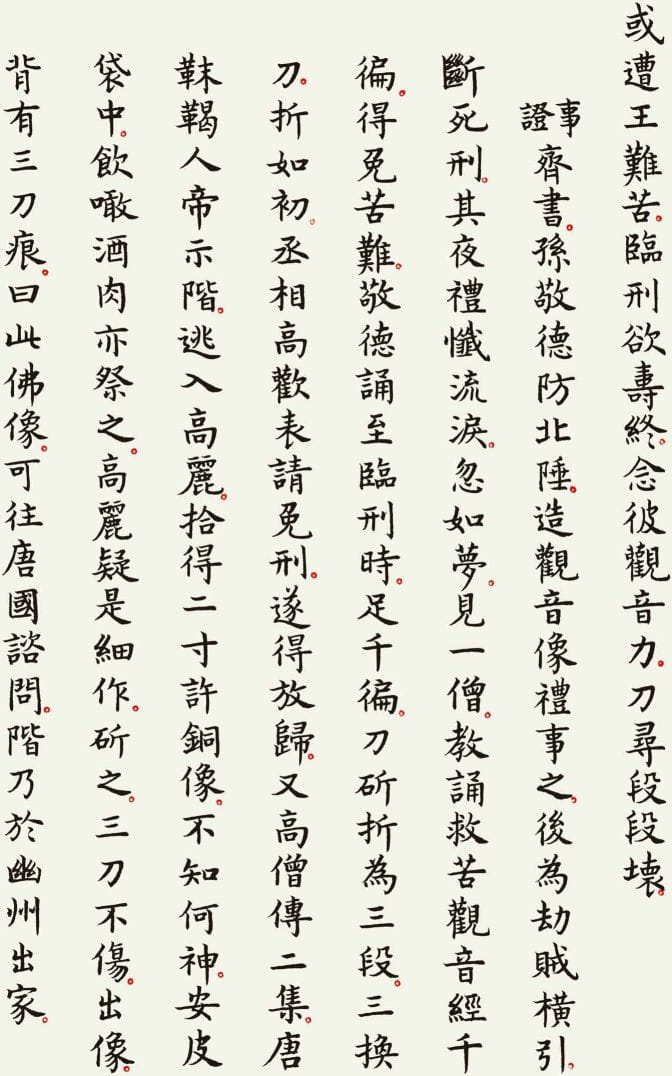 或遭王難苦。臨刑欲壽終。念彼觀音力。刀尋段段壞。
事證齊書。孫敬德防北陲。造觀音像禮事之。後為劫賊橫引。
斷死刑。其夜禮懺流淚。忽如夢。見一僧。教誦救苦觀音經千
徧。得免苦難。敬德誦至臨刑時。足千徧。刀斫折為三段。三換
刀。折如初。丞相高歡表請免刑。遂得放歸。又高僧傳二集。唐
靺鞨人帝示階。逃入高麗。拾得二寸許銅像。不知何神。安皮
袋中。飲噉酒肉亦祭之。高麗疑是細作。斫之。三刀不傷。出像。
背有三刀痕。曰此佛像。可往唐國諮問。階乃於幽州出家。